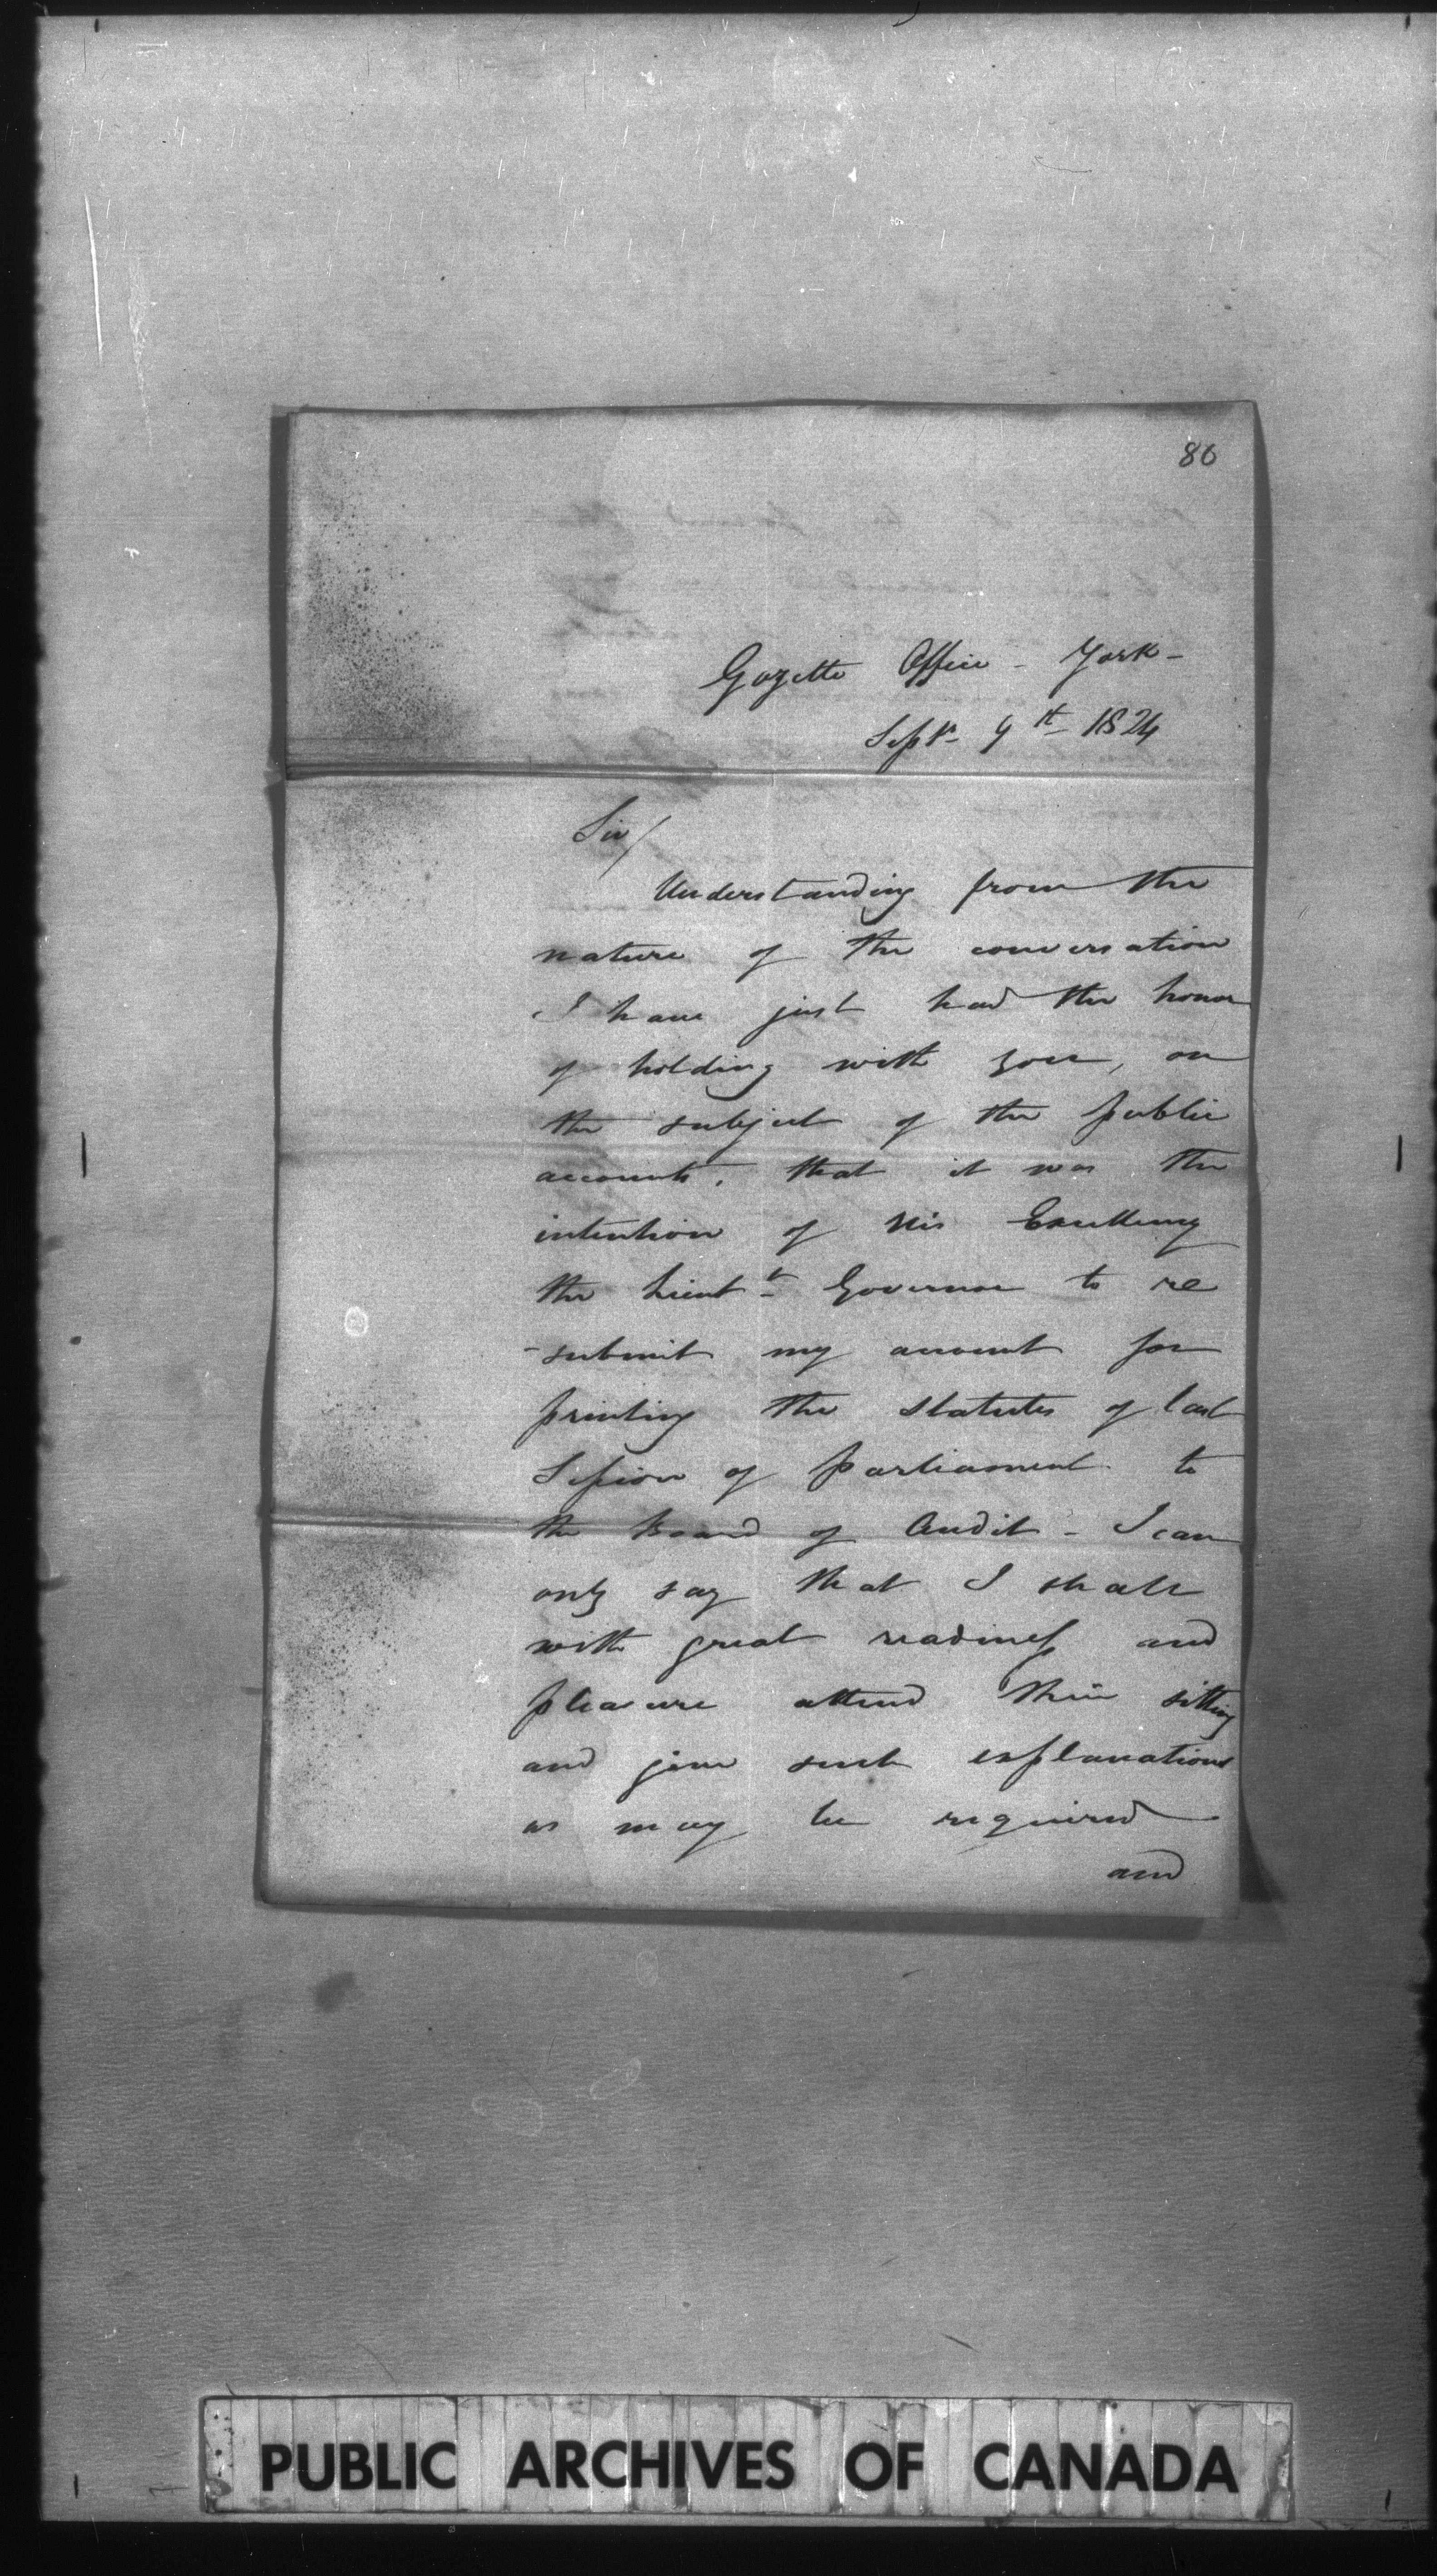 86
Gazette Office - York -
Septr 9th 1824
Sir/
Understanding from the
nature of the conversation
I have just had the honor
of holding with you, on
the subject of the public
accounts, that it was the
intention of His Excellency
the Lieutt Governor to re
-submit my account for
printing the Statutes of last
Session of Parliament to
the Board of Audit - I can
only say that I shall
with great readiness and
pleasure attend their sitting
and give such explanations
as may be required
and
PUBLIC ARCHIVES OF CANADA